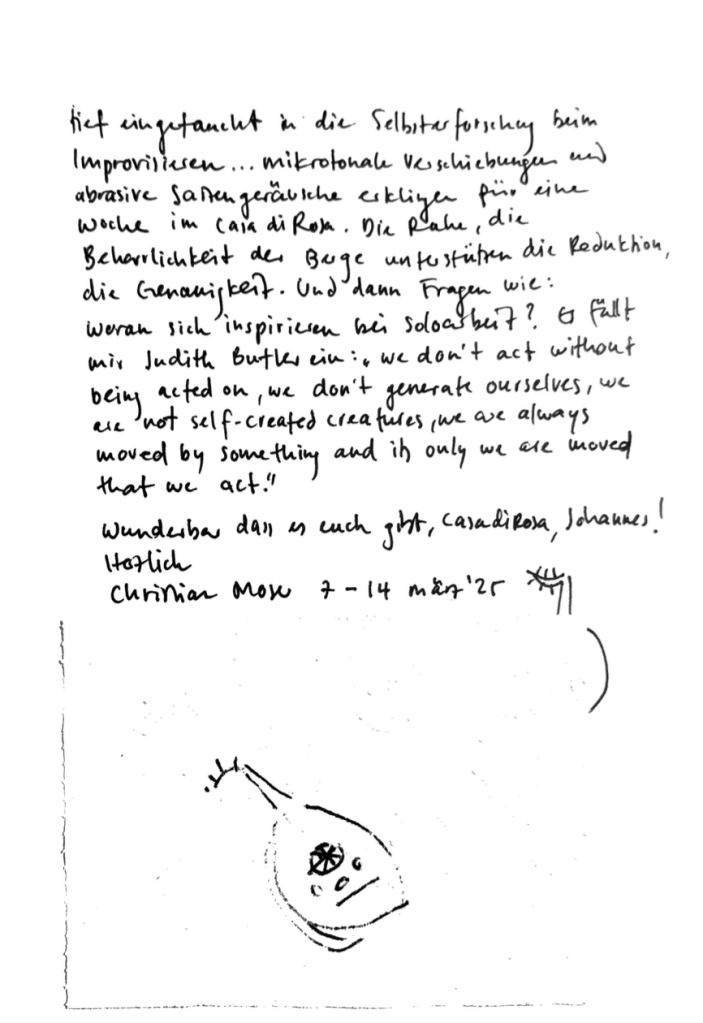 tief eingetaucht in die Selbsterforschung beim
Improvisieren... mikrotonale Verschiebungen und
abrasive Saitengeräusche erklingen für eine
Woche im Casa di Rosa. Die Ruhe, die
Beharrlichkeit der Berge unterstützen die Reduktion,
die Genauigkeit. Und dann Fragen wie:
woran sich inspirieren bei Soloarbeit? Es fällt
mir Judith Butler ein: „we don't act without
being acted on, we don't generate ourselves, we
are not self-created creatures, we are always
moved by something and it's only we are moved
that we act."
Wunderbar dass es euch gibt, Casa di Rosa, Johannes!
Herzlich
Christian 7 – 14 märz '25